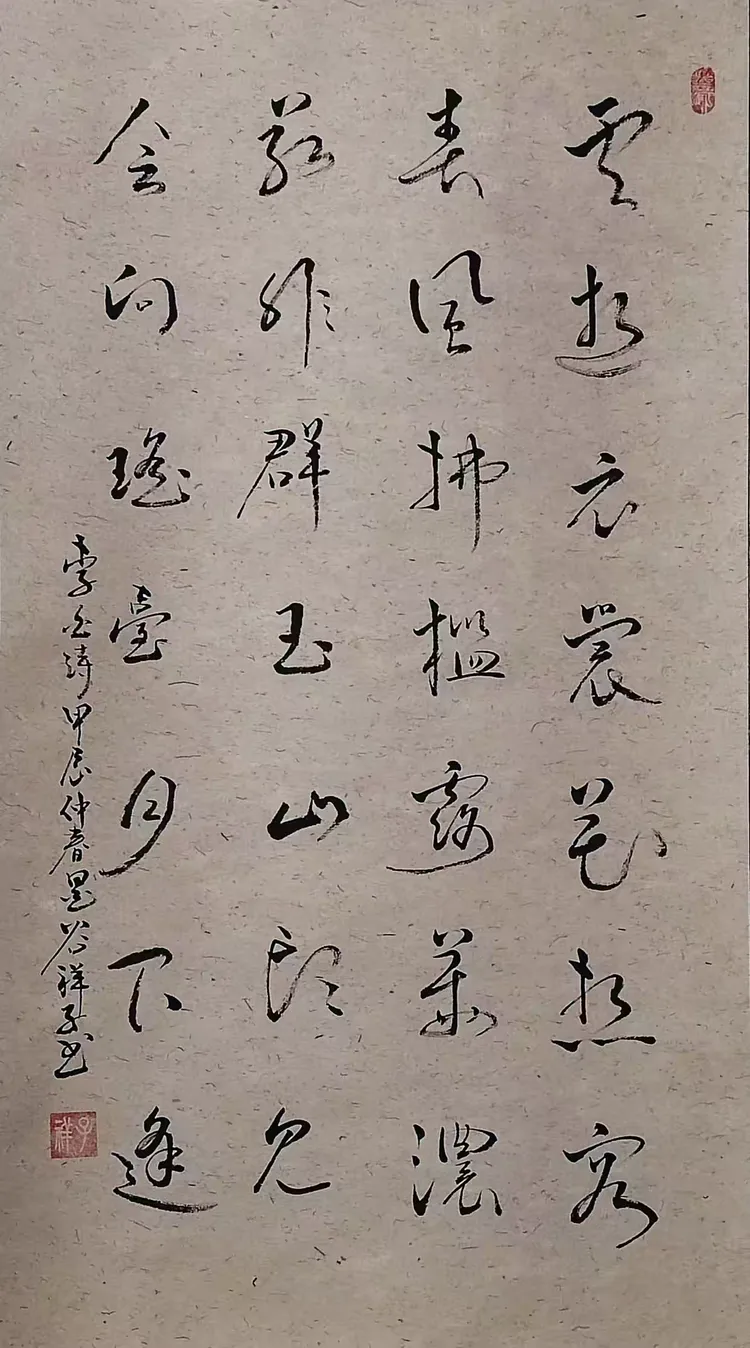 雲想衣裳花想容
春風拂檻露華濃
若非群玉山頭見
会向瑤臺月下逢
李白詩甲辰仲春谷祥子书
子祥